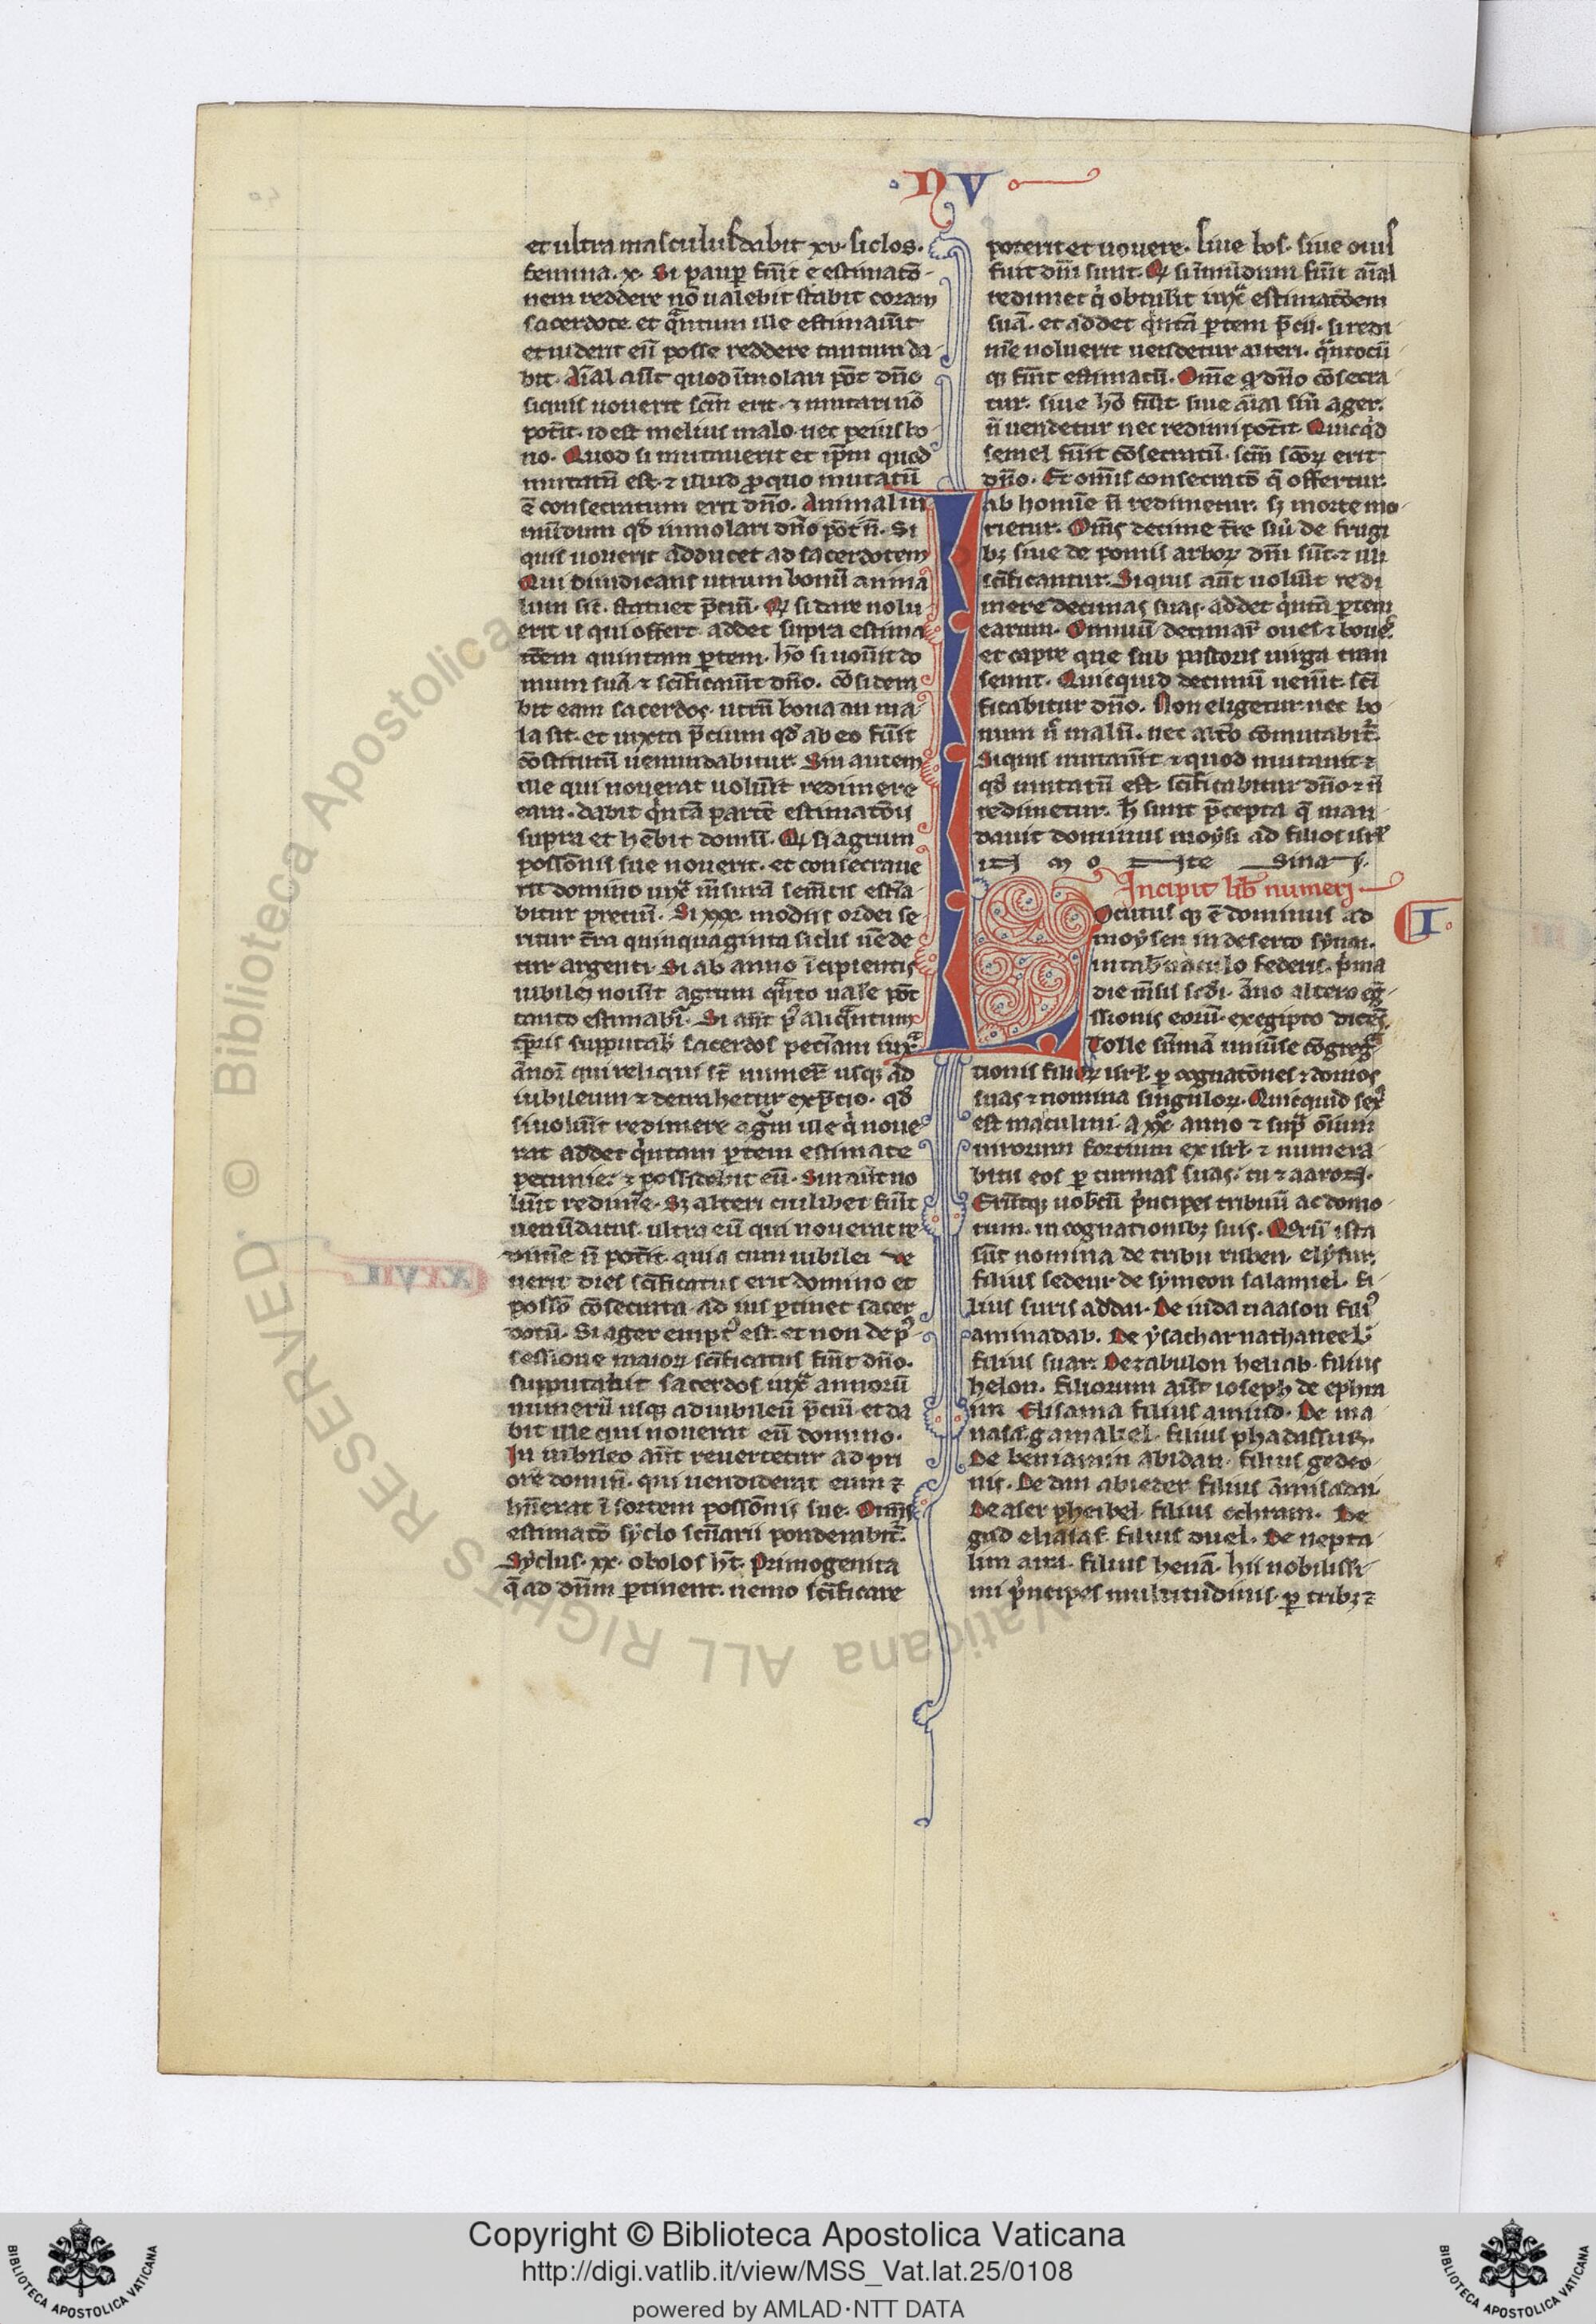 NV
et ultra masculus dabit xv. siclos.
femina. x. Si paup̄ fuīt ⁊ estimatō-
nem reddere nō ualebit stabit coram
sacerdote. et q̄ntum ille estimauīt
et uiderit eū posse reddere tantum da-
bit. Aīal aūt quod īmolari pōt dn̄o
siquis uouerit scm̄ erit. ⁊ mutari nō
potīt. id est melius malo. nec peius bo-
no. Quod si mutauerit et ip̄m quod
mutatū est. ⁊ illud p̄ quo mutatū
ē consecratum erit dn̄o. Animal in
mūdum qd̄ immolari dn̄o pōt n̄. Si
quis uouerit adducet ad sacerdotem
Qui diiudicans utrum bonū an ma
lum sit. statuet p̄ciū. Qd̄ si dare uolu-
erit is qui offert. addet supra estima
tōem quintam p̄tem. hō si uouīt do
mum suā ⁊ scīficauīt dn̄o. cōsidera
bit eam sacerdos. utrū bona an ma-
la sit. et iuxta p̄cium qd̄ ab eo fuīt
cōstitutū uenundabitur. Sin autem
ille qui uouerat uoluīt redimere
eam. dabit q̇ntā partē estimatōis
supra et hēbit domū. Qd̄ si agrum
possōnis sue uouerit. et consecraue
rit domino iuxᵃ m̄surā sem̄tis estīa-
bitur preciū. Si xxx. modiis ordei se-
ritur t̄ra quinquaginta siclis uēde
tur argenti. Si ab anno īcipientis
iubilei uouīt agrum qᵃnto uale pōt
tanto estimabiᵗ. Si aūt p̄ aliqᵃntum
tp̄ris supputabit sacerdos pecīam iuxᵃ
ānoꝝ qui reliqui st̄ numeꝝ usqꝫ ad
iubileum ⁊ detrahetur ex p̄cio. qd̄
si uoluīt redimere agᵃm ille q̇ uoue
rat addet q̇ntam p̄tem estimate
pecunie. ⁊ possidebit eū. Sin aūt no
luīt redim̄e. Sꝫ alteri cuilibet fuīt
uenūdatus. ultra eū qui uouerat re
dim̄e n̄ potīt. quia cum iubilei ue
nerit dies scīficatus erit domino et
possō cōsecrata. ad ius p̄tinet sacer
dotū. Si ager empt᾿ est. et non de p᾿
sessione maioꝝ scīficatus fuīt dn̄o.
supputabit sacerdos iuxᵃ annorū
numerū usqꝫ ad iubileū p̄ciū. et da
bit ille qui uouerat eū domino.
In iubileo aūt reuertetur ad pri
orē domin̄. qui uendiderat eum ⁊
hūerat ī sortem possōnis sue. Omīs
estimatō syclo scūarii ponderabiᵗ.
Syclus. xx. obolos ht̄. Primogenita
q̄ ad dn̄m p̄tinent. nemo scīficare
poterit et uouere. siue bos. siue ouis
fuīt dn̄i sunt. Qd̄ si īmūdum fuīt aīal
redimet q̇ obtulit iuxᵃ estimatōem
suā. et addet q̇ntā p̄tem p̄cii. si redi-
m̄e noluerit uendetur alteri. qᵃntocū-
qꝫ fuīt estimatū. Om̄e qd̄ dn̄o cōsecra
tur. siue hō fuīt siue aīal siu᾿ ager.
n̄ uendetur nec redimi potīt. Quicq̇d
semel fuīt cōsecratū. scm̄ scōꝝ erit
dn̄o. Et omīs consecratō q̄ offertur.
ab homīe n̄ redimetur. sꝫ morte mo-
rietur. Om̄s decime t̄re siu᾿ de frugi
bꝫ siue de pomis arboꝝ dn̄i sūt. ⁊ illi
scīficantur. Siquis aūt uoluīt redi
mere decimas suas. addet q̇ntā p̄tem
earum. Omniū decimaꝝ oues ⁊ boues.
et capre que sub pastoris uirga tran
seunt. Quicquid decimū uenīt. scī
ficabitur dn̄o. Non eligetur nec bo-
num n̄ malū. nec altō cōmutabiᵗ.
Siquis mutauīt ⁊ quod mutauit ⁊
qd̄ mutatū est. scīficabitur dn̄o ⁊ n̄
redimetur. h̄ sunt p̄cepta q̄ man
dauit dominus moysi ad filios isrł
in mōte Sinai.
Incipit lib̄ numeri
I.
Locutus qꝫ ē dominus ad
moysen in deserto synai.
in tab̄naculo federis. p̄ma
die m̄sis scd̄i. āno altero eg̃-
ssionis eorū. ex egipto dicēs.
Tolle sūmā uniūse cōgregᵃ
tionis filioꝝ isrł. p̄ cognatōnes ⁊ domos
suas ⁊ nomina singuloꝝ. Quicquid sex᾿
est masculini. a xxᵒ. anno ⁊ supᵃ ōium
uirorum fortium ex isrł. ⁊ numera
bitis eos p̄ turmas suas. tu ⁊ aaron.
Erūtqꝫ uobcū p̄ncipes tribuū ac domo-
rum. in cognationibꝫ suis. Qorū ista
sūt nomina de tribu ruben. elysur.
filius sedeur. de symeon salamiel. fi-
lius surisaddai. De iuda naason fili᾿
aminadab. De ysachar nathaneel.
filius suar. De zabulon heliab. filius
helon. filiorum aūt ioseph de ephra
im Elisama filius amiud. De ma
nasse. gamaliel. filius phadassur.
De beniamin abidan. filius gedeo-
nis. De dan abiezer filius amisadai.
De aser phegiel. filius ochram. De
gad eliasaf. filius duel. De nepta-
lim aira. filius henā. hii nobilissi-
mi p̄ncipes multitudinis. p̄ tribꝫ ⁊
XXVII
© Biblioteca Apostolica Vaticana ALL RIGHTS RESERVED.
Copyright © Biblioteca Apostolica Vaticana
http://digi.vatlib.it/view/MSS_Vat.lat.25/0108
powered by AMLAD·NTT DATA
BIBLIOTECA APOSTOLICA VATICANA
BIBLIOTECA APOSTOLICA VATICANA